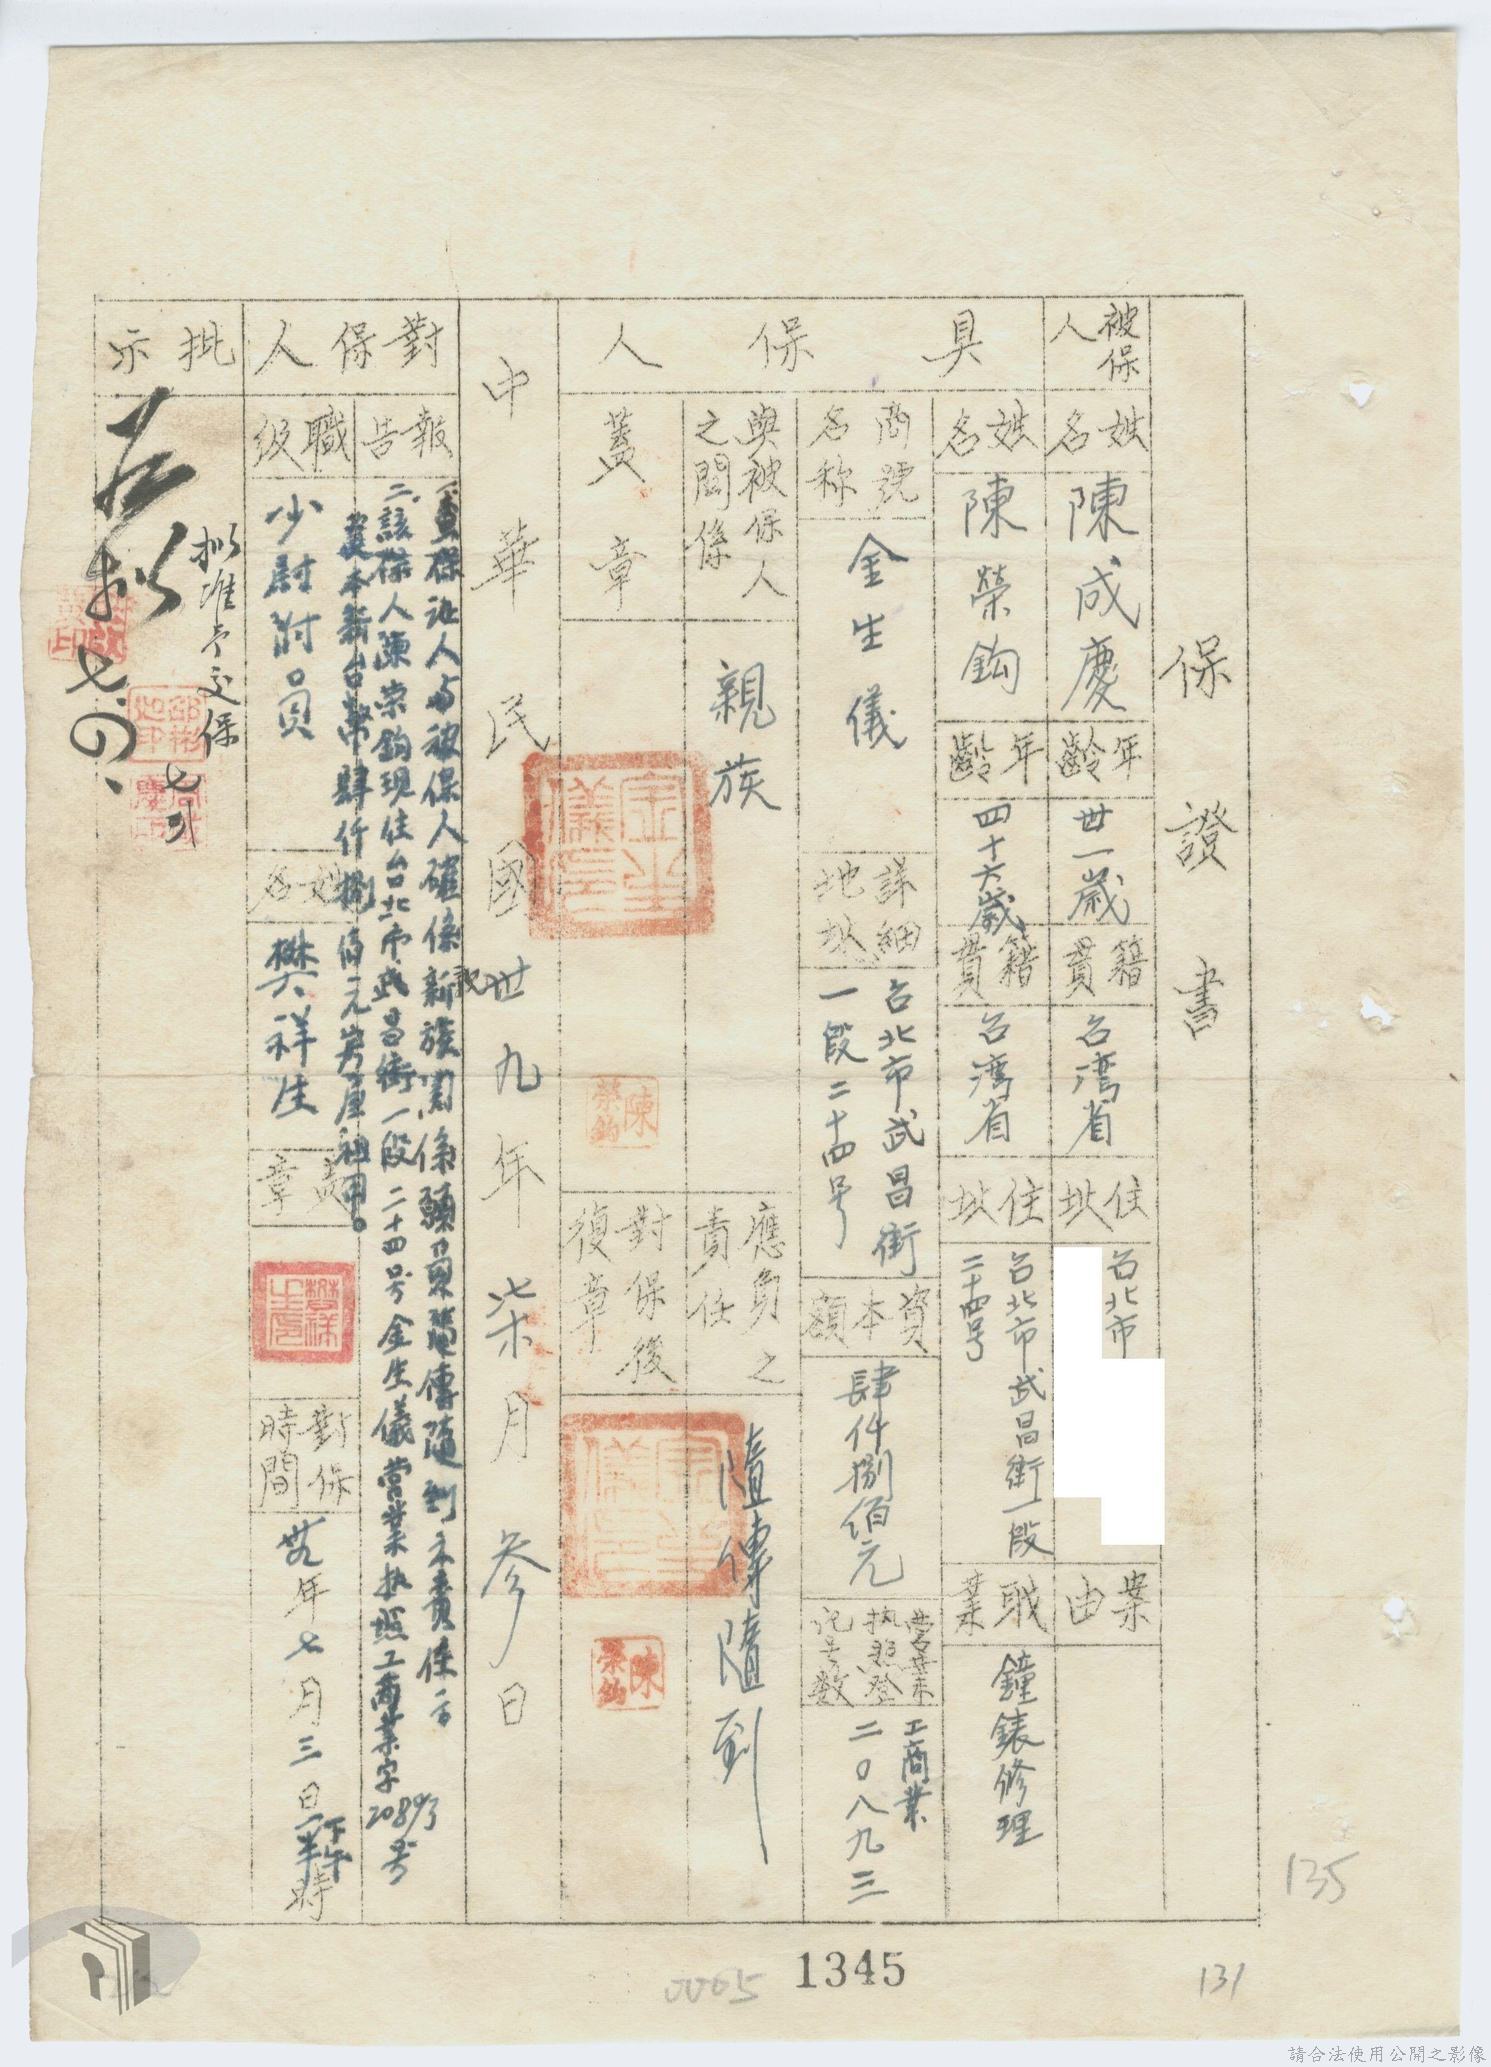 保證書
被保人
姓名
陳成慶
年齡
卅一歲
籍貫
台湾省
住址
台北市
案由
具保人
姓名
陳榮鈎
年齡
四十六歲
籍貫
台湾省
住址
台北市武昌街一段
二十四号
職業
鐘錶修理
商號名称
金生儀
詳細地址
台北市武昌街
一段二十四号
資本額
肆仟捌佰元
營業执照登记号数
工商業
二〇八九三
與被保人之關係
親族
應負之責任
隨傳隨到
蓋章
對保後復章
中華民國卅九年柒月參日
對保人
報告
二、該保人陳榮鈎現住台北市武昌街一段二十四号金生儀營業执照工商業字20893号
資本新台幣肆仟捌佰元房屋租用。
職級
少尉附員
姓名
樊祥生
蓋章
對保時間
卅九年七月三日下午二半時
批示
拟准予交保
七、四、
陳榮鈎
陳榮鈎
135
1345
0065
131
請合法使用公開之影像